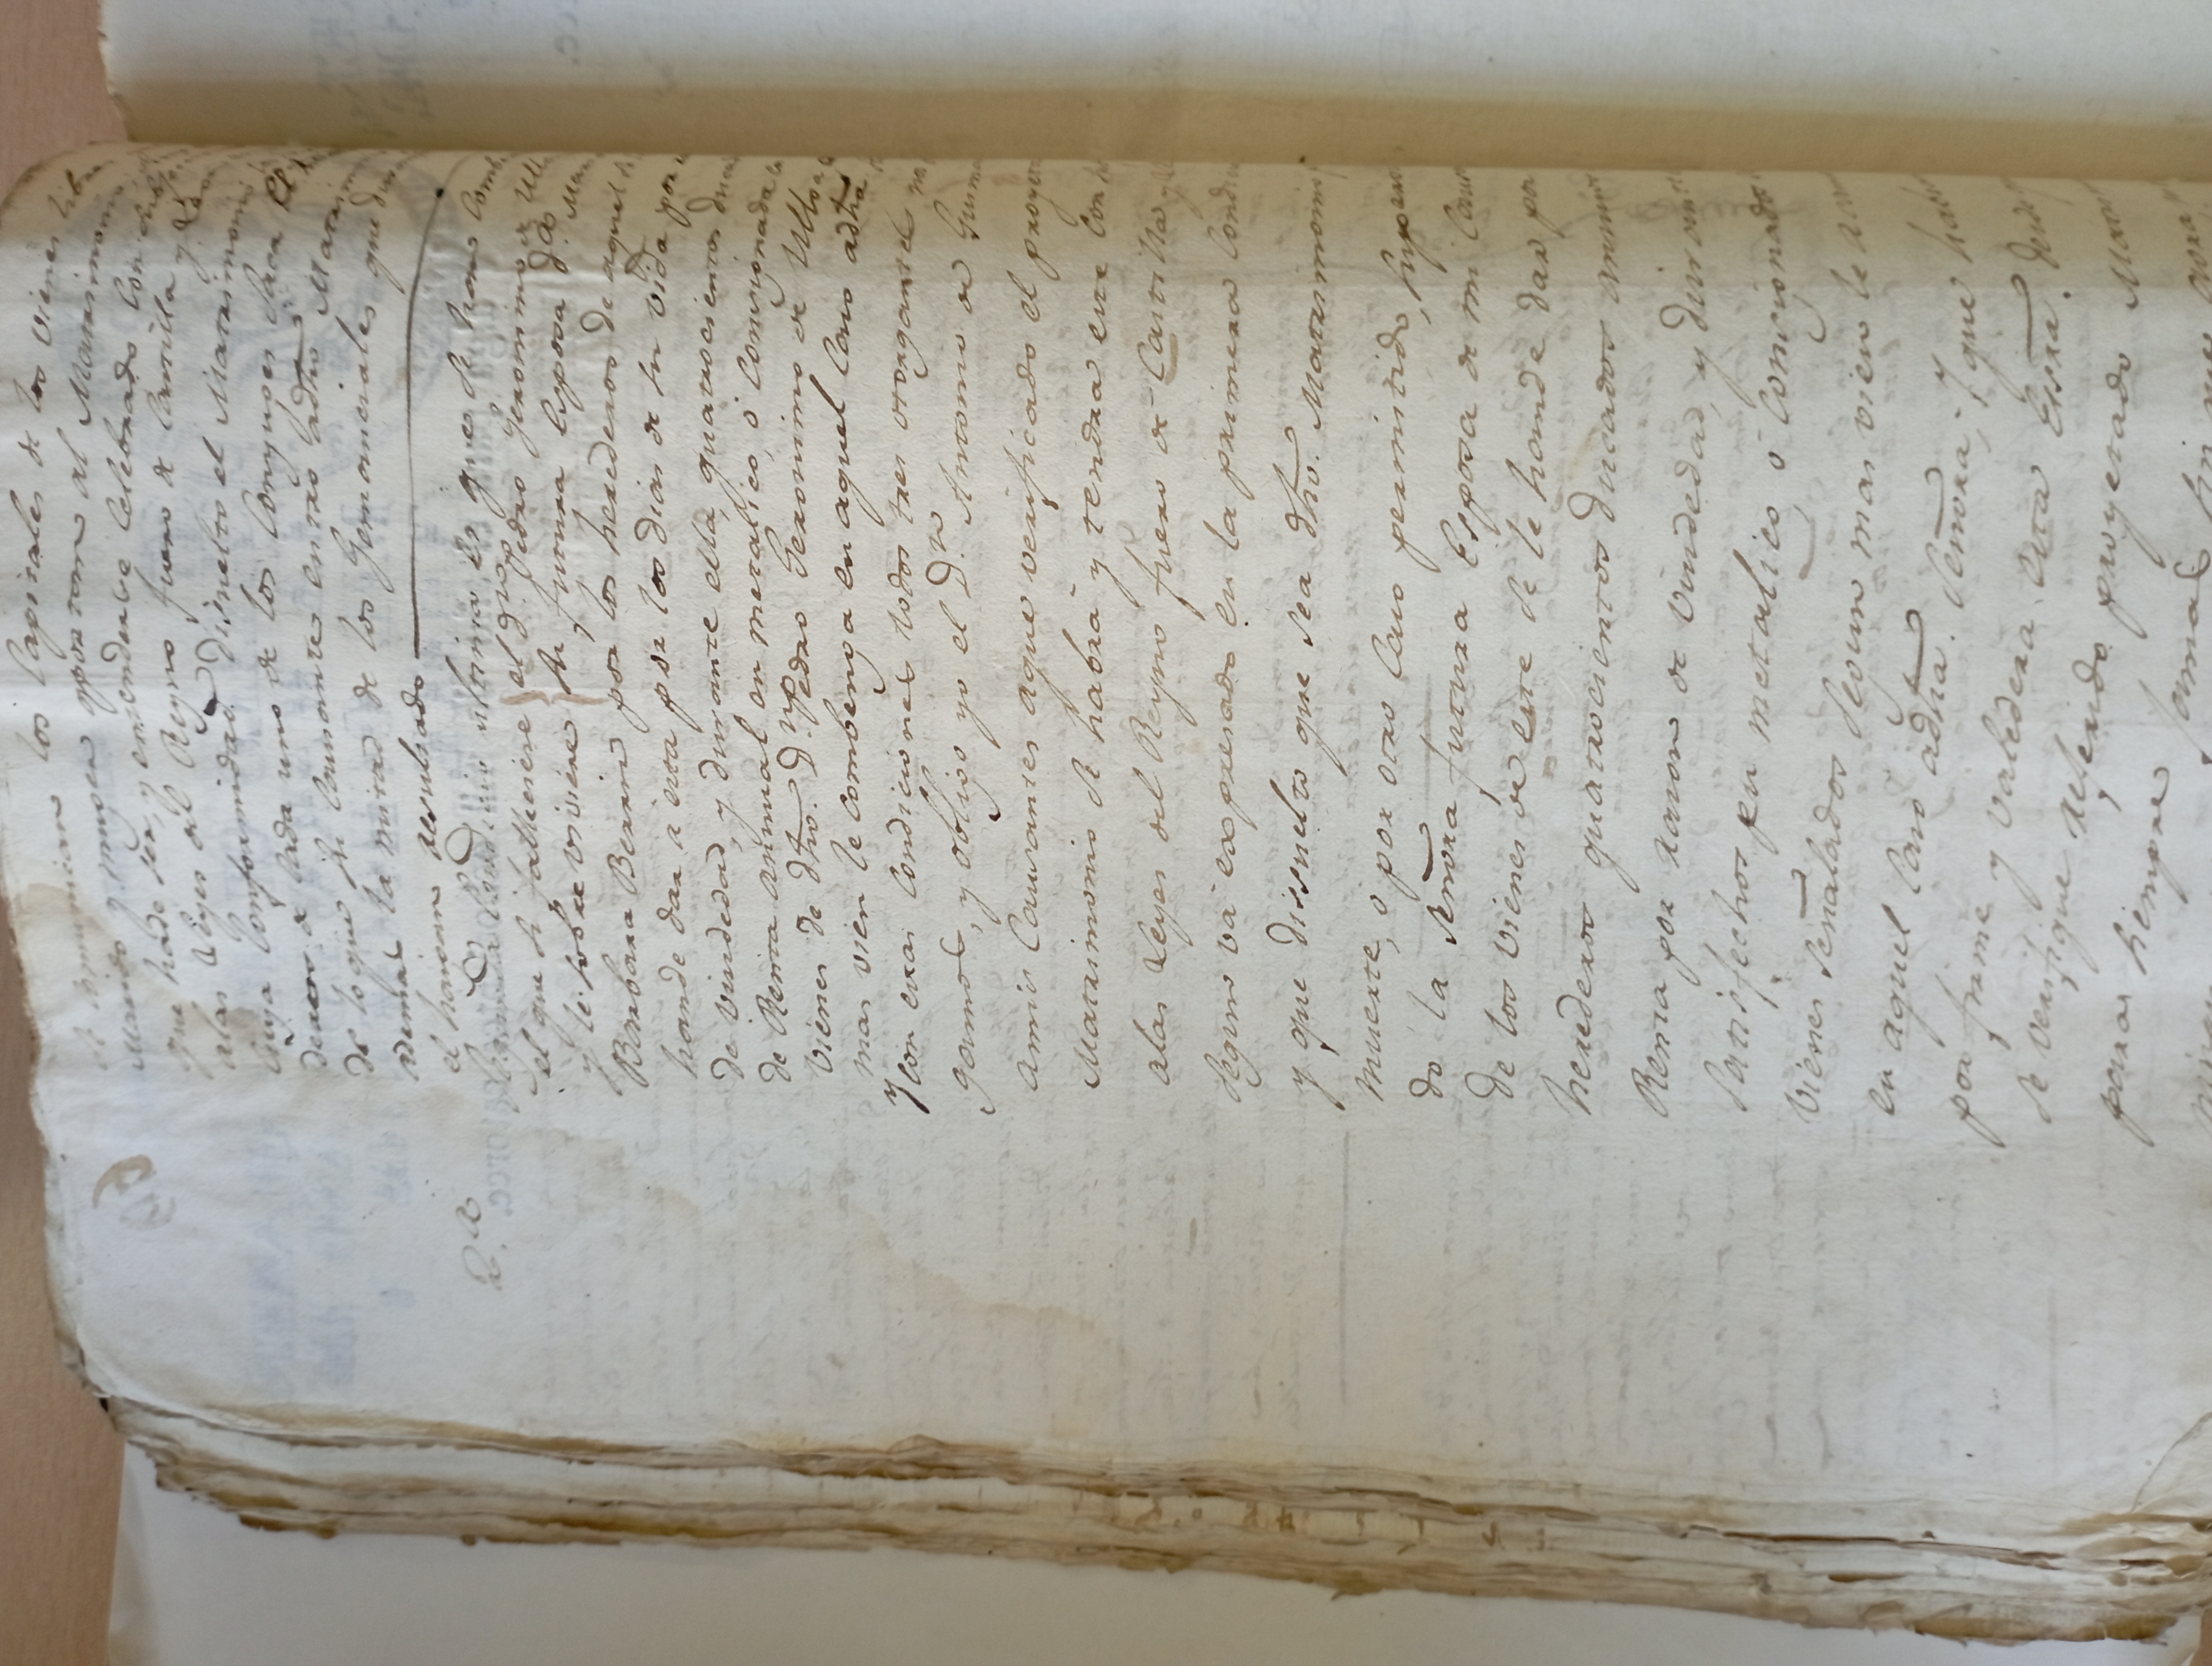 se comunican los Capitales de los vienes libres
Marido y muger aportan al Matrimonio
que hade ser, y entenderse Celebrado con
alas Leyes del Reyno fuero de Castilla y
Cuya Conformidad disuelto el Matrimonio
de cada uno de los Conyuges saca el
de lo que su Causante entro adho Matrim
ademas la mitad de los Gananciales que
el haian resultado
2.a
Segunda Condicio ultima es que se han Comb
el que si falleciese el dn. Pedro Geronimo de Ullo
y le sobre viviere su futura Esposa da. Mar
Barbara Berrio por los herederos de aquel se
hande dar a esta por los dias de su vida por
de viudedad, y durante ella, quatrocientos duca
de Renta annual en metalico, ó consignada en
vienes de dho. Dn. Pedro Geronimo de Ulloa,
mas vien le combenga en aquel Caso adha
Y con estas condiciones todos tres otorgantes
gamos, y obligo yo el Dn. Antonio de Gusma
amis Causantes aque verificado el proyeta
Matrimonio se habrá y tendra este con
alas Leyes del Reyno fuero de Castilla y
segun vá expresado en la primera Condi
y que dissuelto que sea dho. Matrimonio
muerte, ó por otro Caso permitido,
do la señora futura Esposa de mi Caus
de los vienes de este se le hande dar por
herederos quatrocientos ducados annuos
Renta por razon de viudedad, y durante
satisfechos en metalico, ó consignados
vienes señalados segun mas vien le acom
en aquel Caso adha. Señora; Y que
por firme y valedera esta Essra. desde
se verifique referido proyetado Matri
para siempre Jamas sin que aora